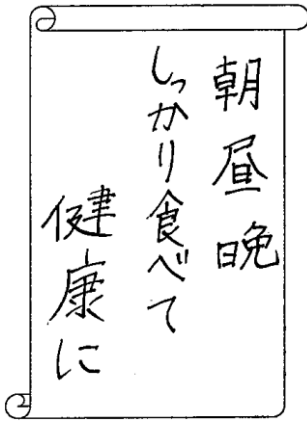 朝昼晩
しっかり食べて
健康に